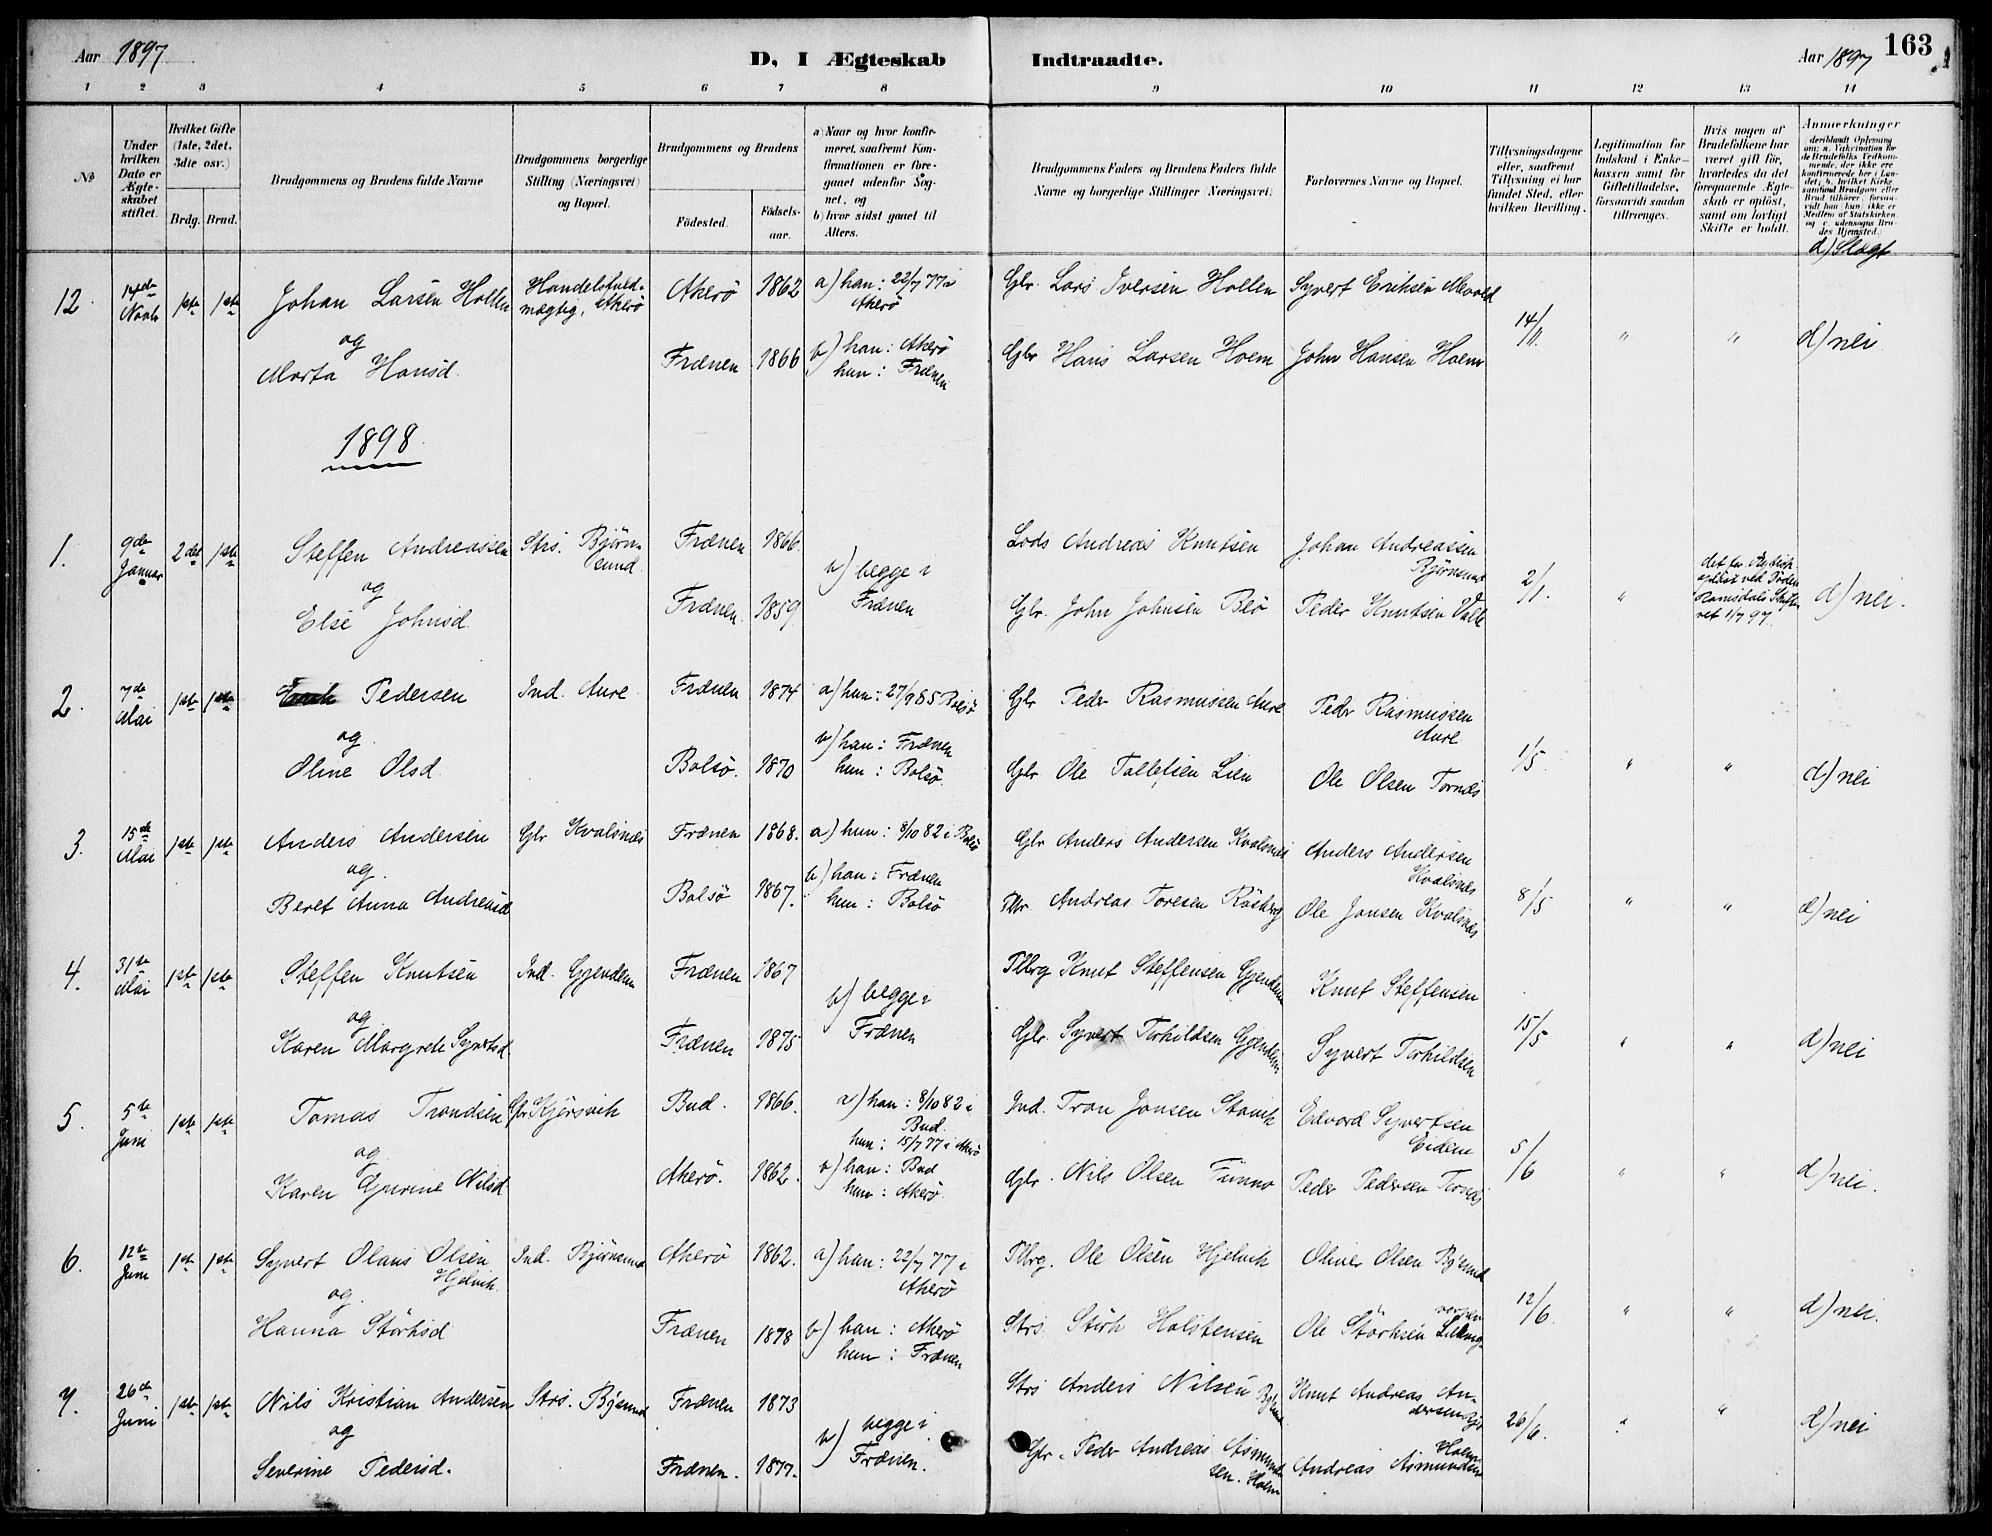 Aar 1897
D, I Ægteskab Indtraadte.
Aar 1897
163
1 2 3 4 5 6 7 8 9 10 11 12 13 14
№
Under hvilken Dato er Ægteskabet stiftet.
Hvilket Gifte (1ste, 2det, 3die osv.)
Brdg. Brud.
Brudgommens og Brudens fulde Navne
Brudgommens borgerlige Stilling (Næringsvei) og Bopæl.
Brudgommens og Brudens
Födested.
Födselsaar.
a) Naar og hvor konfirmeret, saafremt Konfirmationen er foregaaet udenfor Sognet, og
b) hvor sidst gaaet til Alters.
Brudgommens Faders og Brudens Faders fulde Navne og borgerlige Stillinger (Næringsvei)
Forlovernes Navne og Bopæl.
Tillysningsdagene eller, saafremt Tillysning ei har fundet Sted, efter hvilken Bevilling.
Legitimation for Indskud i Enkekassen samt for Giftetilladelse, forsaavidt saadan tiltrænges.
Hvis nogen af Brudefolkene har været gift för, hvorledes da det foregaaende Ægteskab er oplöst, samt om lovligt Skifte er holdt.
Anmærkninger
d) Slægt
12. 14de Novb 1ste 1ste Johan Larsen Hollen Handelsfuldmægtig, Akerö Akerö 1862 a) han: 22/7 77 i Akerö Gbr. Lars Iversen Hollen Syvert Eriksen Mevold
og
Marta Hansd. Frænen 1866 b) han: Akerö hun: Frænen Gbr Hans Larsen Hoem John Hansen Hoem 14/11. " " d) nei
1898.
1. 9de Januar 2det 1ste Steffen Andreassen Strs. Björnsund Frænen 1866. Lods Andreas Knutsen Johan Andreassen Björnsund
og b) begge i Frænen
Else Johnsd. Frænen 1859 Gbr. John Johnsen Beö Peder Knutsen Valle 2/1. " d) nei.
2. 7de Mai 1ste 1ste Pedersen Ind. Aure Frænen 1874 a) hun: 27/9 85 Bolsö Gbr Peder Rasmussen Aure Peder Rasmussen Aure
og
Oline Olsd. Bolsö. 1870 b) han: Frænen hun: Bolsö. Gbr Ole Tollefsen Lien Ole Olsen Tornes 1/5. " " d) nei
3. 15de Mai 1ste 1ste Anders Andersen Gbr Kvalsnes Frænen 1868. a) hun: 8/10 82 i Bolsö Gbr Anders Andersen Kvalsnes Anders Andersen Kvalsnes
og
Beret Anna Andreasd Bolsö 1867. b) han: Frænen hun: Bolsö Andreas Toresen Ole Jonsen Kvalsnes 8/5 " " d) nei
4. 31te Mai 1ste 1ste Steffen Knutsen Ind. Gjendem Frænen 1867 Plbrg Knut Steffensen Gjendem Knut Steffensen
og b) begge i Frænen
Karen Margrete Syvertsd. Frænen 1875 Gbr. Syvert Torhildsen Gjendem Syvert Torhildsen 15/5 " " d) nei
5. 5te Juni 1ste 1ste Tomas Trondsen Gbr Kjörsvik Bud. 1866. a) han: 8/10 82 i Bud. hun: 15/7 77 i Akerö Ind. Tron Jonsen Stavik Edvard Syvertsen Eidem
og
Karen Gurine Nilsd Akerö. 1862. b) han: Bud hun: Akerö. Gbr. Nils Olsen Peder Pedersen Tornes 5/6 " " d) nei.
6. 12te Juni 1ste 1ste Syvert Olaus Olsen Hjelvik Ind. Björnsund Akerö 1862. a) han: 22/7 77 i Akerö Plbrg. Ole Olsen Hjelvik Oliver Olsen Bjsund
og
Hanna Störksd Frænen 1878 b) han: Akerö hun: Frænen Strs. Störk Holstensen Ole Störksen 12/6. " " d) nei.
7. 26de Juni 1ste 1ste Nils Kristian Andersen Strs. Bjsund Frænen 1873 Strs Anders Nilsen Bjsund Knut Andreas Andersen
og b) begge i Frænen.
Severine Pedersd. Frænen. 1877. Gbr. Peder Andreas Asmundsen. Hoem Andreas Asmundsen Hoem 26/6. " " d) nei